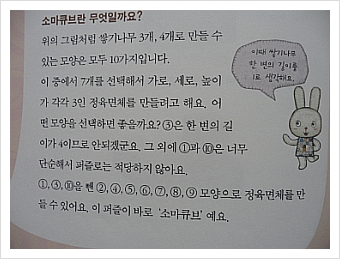 소마큐브란 무엇일까요?
위의 그림처럼 쌓기나무 3개, 4개로 만들 수
있는 모양은 모두 10가지입니다.
이 중에서 7개를 선택해서 가로, 세로, 높이
가 각각 3인 정육면체를 만들려고 해요. 어
떤 모양을 선택하면 좋을까요? ③은 한 변의 길
이가 4이므로 안되겠군요. 그 외에 ①과 ⑩은 너무
단순해서 퍼즐로는 적당하지 않아요.
①, ③, ⑩을 뺀 ②, ④, ⑤, ⑥, ⑦, ⑧, ⑨ 모양으로 정육면체를 만
들 수 있어요. 이 퍼즐이 바로 ‘소마큐브’ 예요.
이때 쌓기나무
한 변의 길이를
1로 생각해요.